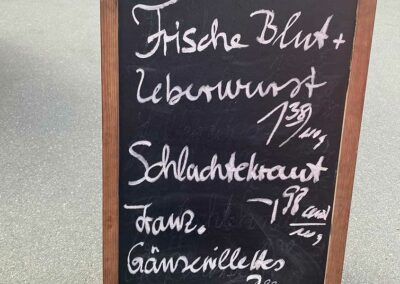 Frische Blut +
Leberwurst
1 38/100g
Schlachtekraut
-,98
Franz.
100g
Gänserillettes